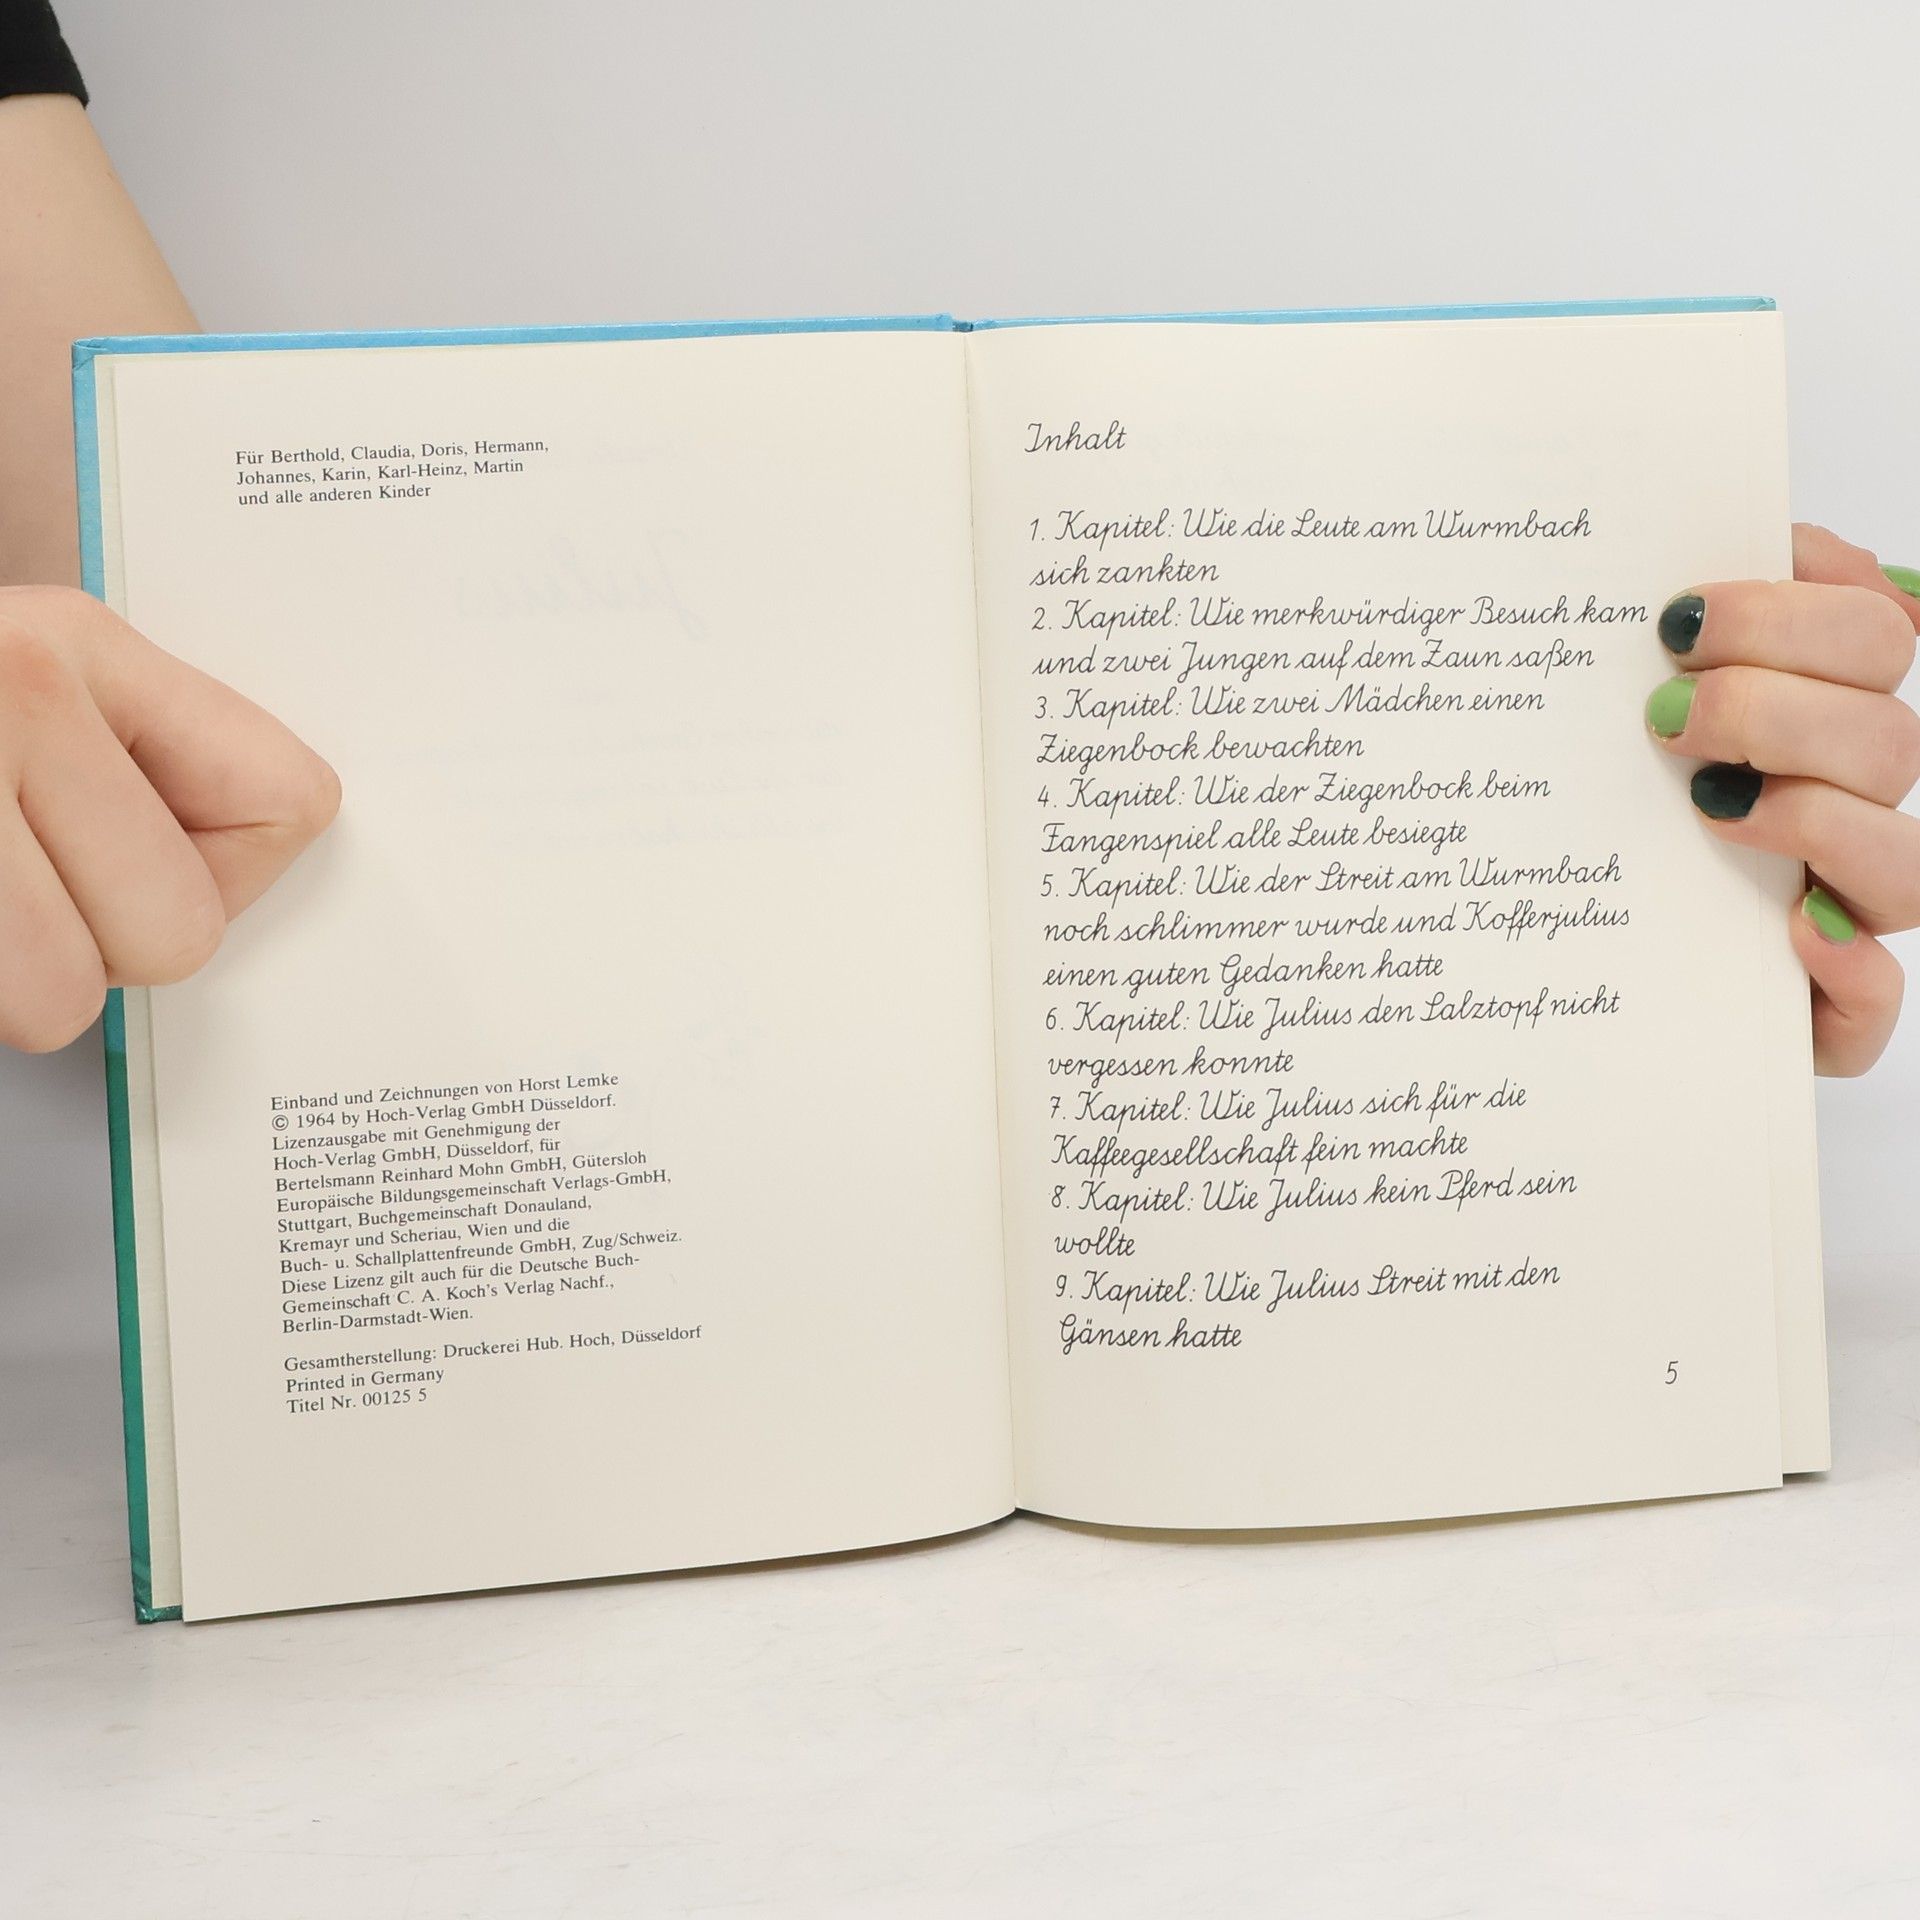 Für Berthold, Claudia, Doris, Hermann,
Johannes, Karin, Karl-Heinz, Martin
und alle anderen Kinder
Einband und Zeichnungen von Horst Lemke
© 1964 by Hoch-Verlag GmbH Düsseldorf.
Lizenzausgabe mit Genehmigung der
Hoch-Verlag GmbH, Düsseldorf, für
Bertelsmann Reinhard Mohn GmbH, Gütersloh
Europäische Bildungsgemeinschaft Verlags-GmbH,
Stuttgart, Buchgemeinschaft Donauland,
Kremayr und Scheriau, Wien und die
Buch- u. Schallplattenfreunde GmbH, Zug/Schweiz.
Diese Lizenz gilt auch für die Deutsche Buch-
Gemeinschaft C. A. Koch's Verlag Nachf.,
Berlin-Darmstadt-Wien.
Gesamtherstellung: Druckerei Hub. Hoch, Düsseldorf
Printed in Germany
Titel Nr. 00125 5
Inhalt
1. Kapitel: Wie die Leute am Wurmbach
sich zankten
2. Kapitel: Wie merkwürdiger Besuch kam
und zwei Jungen auf dem Zaun saßen
3. Kapitel: Wie zwei Mädchen einen
Ziegenbock bewachten
4. Kapitel: Wie der Ziegenbock beim
Fangenspiel alle Leute besiegte
5. Kapitel: Wie der Streit am Wurmbach
noch schlimmer wurde und Kofferjulius
einen guten Gedanken hatte
6. Kapitel: Wie Julius den Salztopf nicht
vergessen konnte
7. Kapitel: Wie Julius sich für die
Kaffeegesellschaft fein machte
8. Kapitel: Wie Julius kein Pferd sein
wollte
9. Kapitel: Wie Julius Streit mit den
Gänsen hatte
5